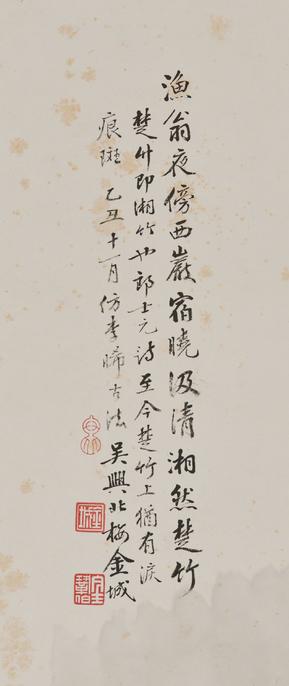 漁翁夜傍西巖宿曉汲清湘然楚竹
楚竹即湘竹也郎士元詩至今楚竹上猶有淚
痕斑 乙丑十一月仿李晞古法 吳興北楼金城
金城